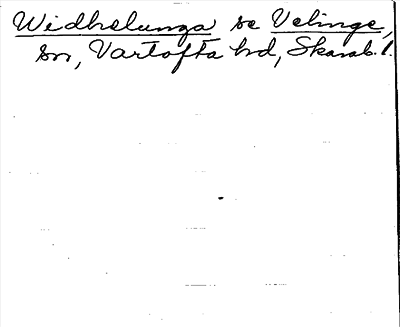 Widhelunga se Velinge,
sn, Vartofta hd, Skarab. l.